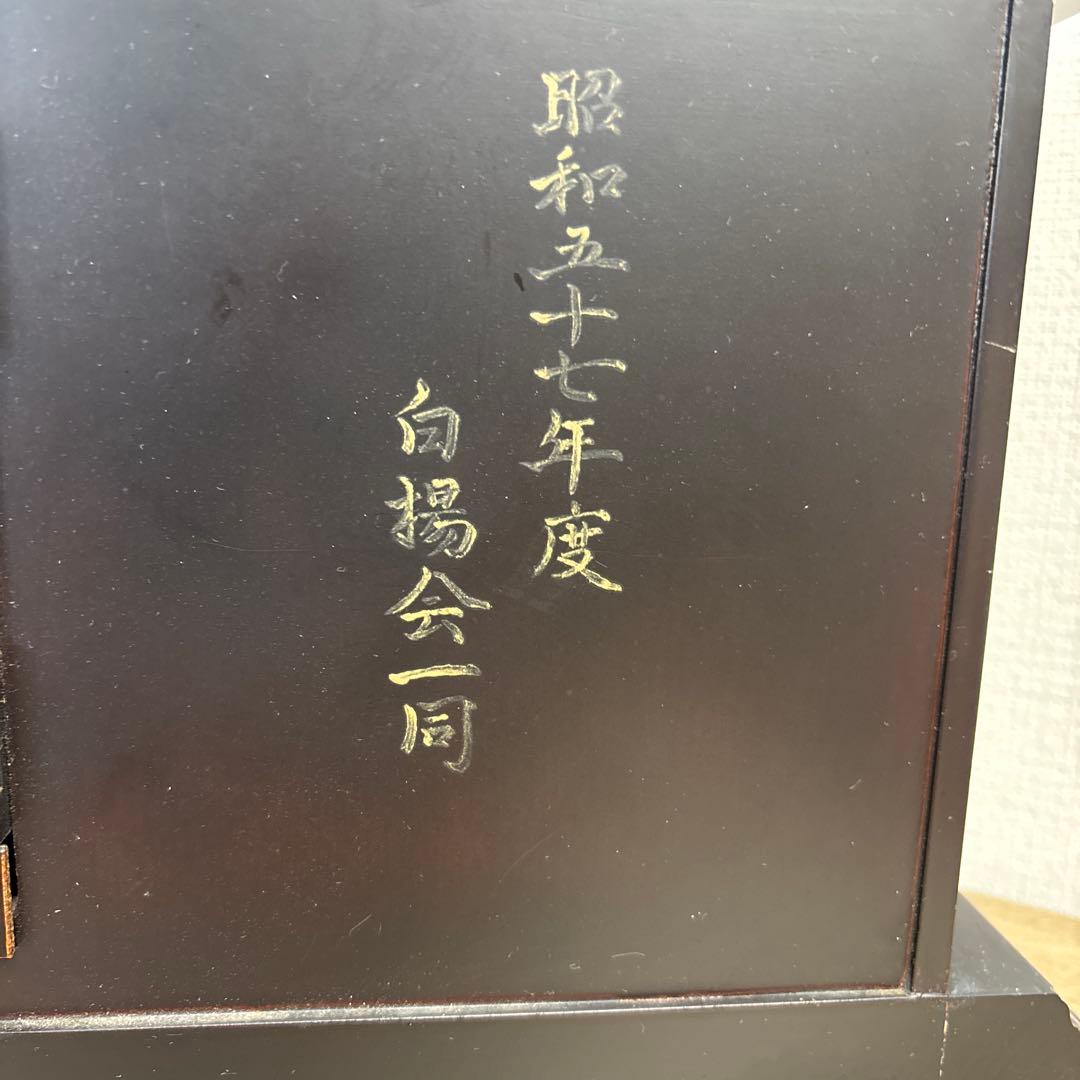 昭和五十七年度
白揚会一同